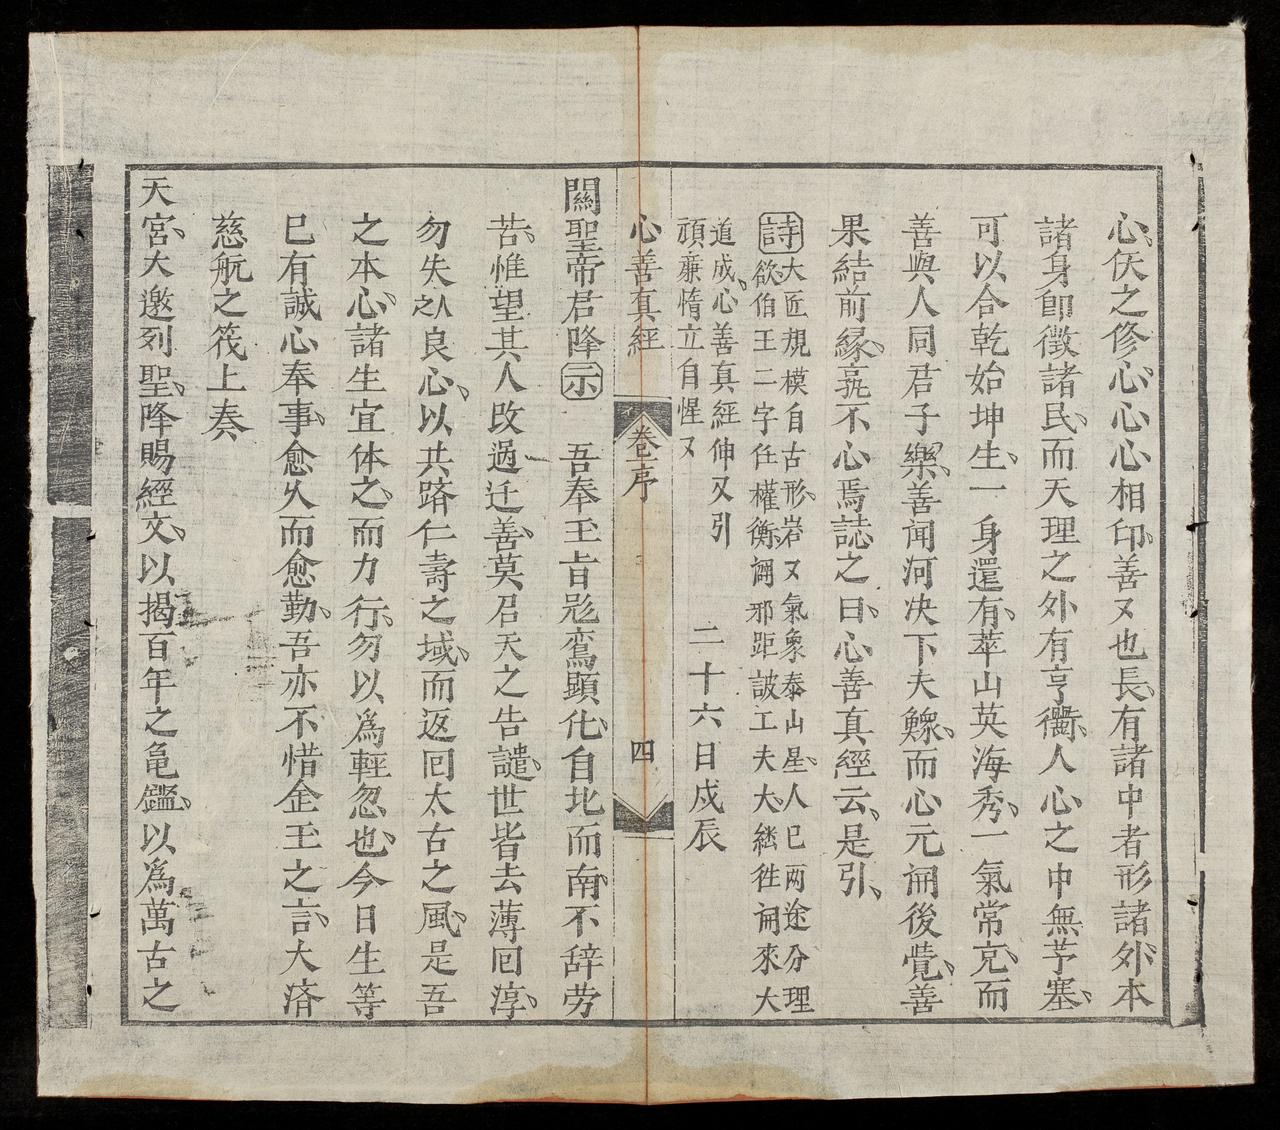 心、伕之修心、心心相印、善又也長、有諸中者形諸外、本
諸身卽徵諸民、而天理之外有亨衢、人心之中無茅塞、
可以合乾始坤生、一身還有、萃山英海秀、一氣常充、而
善與人同君子樂、善闻河决下夫鰥、而心元開後覺、善
果結前縁、孰不心焉誌之曰、心善真經云、是引、
詩大匠規模自古形、岩又氣象泰山星、人巳两途分理
欲伯王二字任權衡、闢邪距詖工夫大、継徃開來大
道成、心善真經伸又引
頑亷惰立自惺又
二十六日戍辰
心善真經 卷一序 四
關聖帝君降示 吾奉玉旨彨鸞顯化、自北而南、不辞劳
苦、惟望其人改過迁善、莫召天之告譴、世皆去薄囘淳、
勿失从之良心、以共躋仁壽之域、而返囘太古之風、是吾
之本心、諸生宜体之、而力行、勿以爲輕忽也、今日生等
巳有誠心奉事、愈乆而愈勤、吾亦不惜金玉之言、大済
慈航之筏上奏
天宮、大邀列聖、降賜經文、以揭百年之亀鑑、以爲萬古之